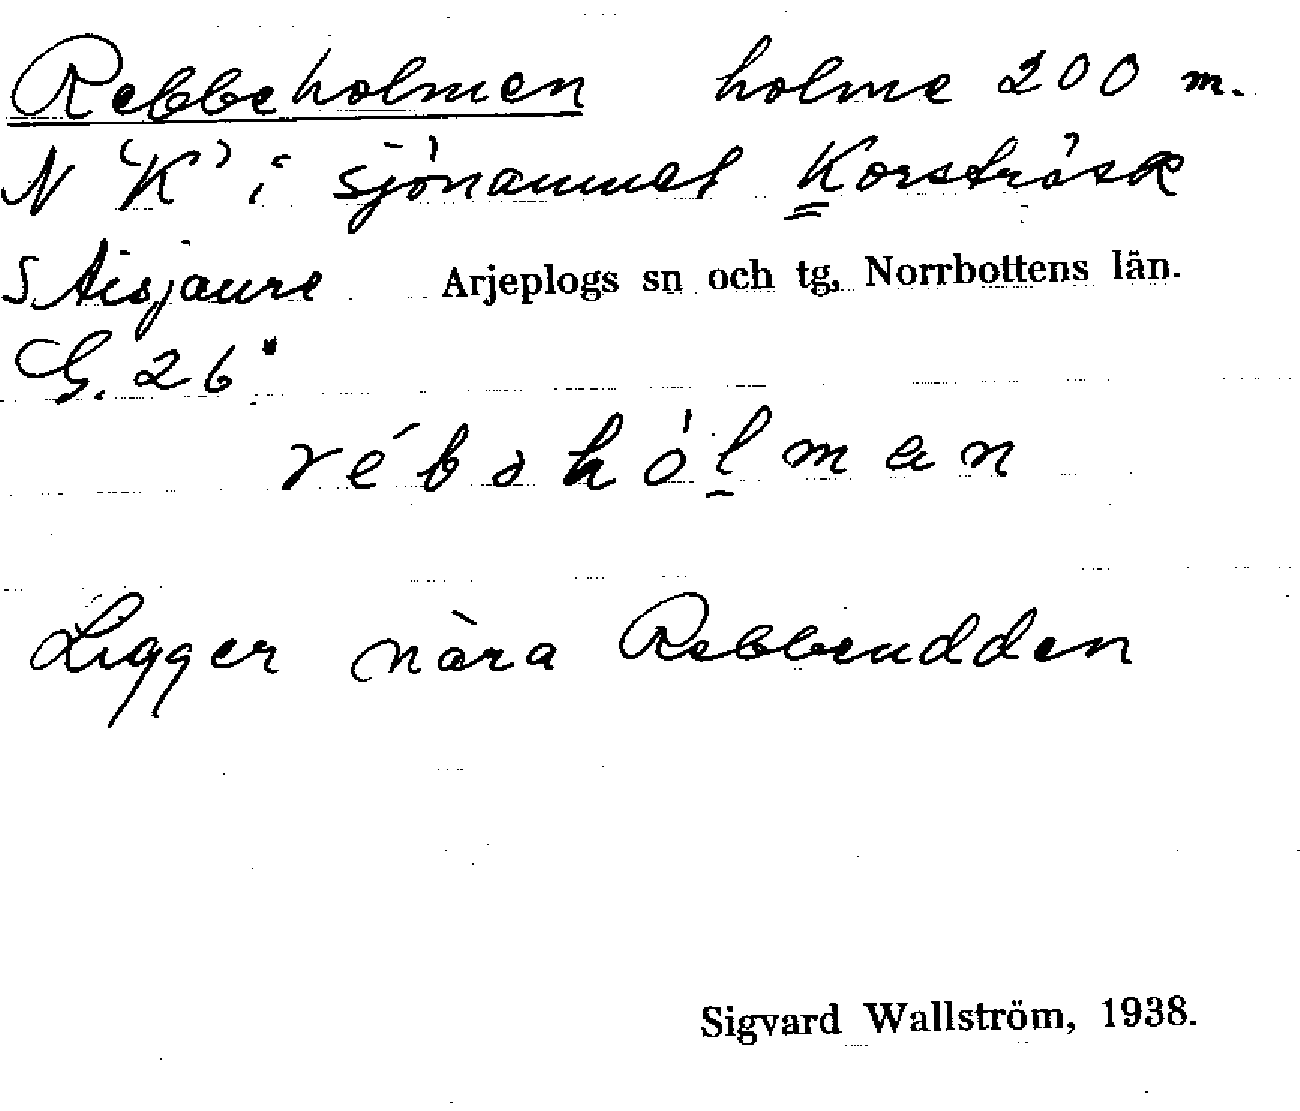 Rebbeholmen holme 200 m.
N "K" i sjönamnet Korsträsk
S Aisjaure Arjeplogs sn och tg, Norrbottens län.
G. 26"
rébəhólman
Ligger nära Rebbeudden
Sigvard Wallström, 1938.